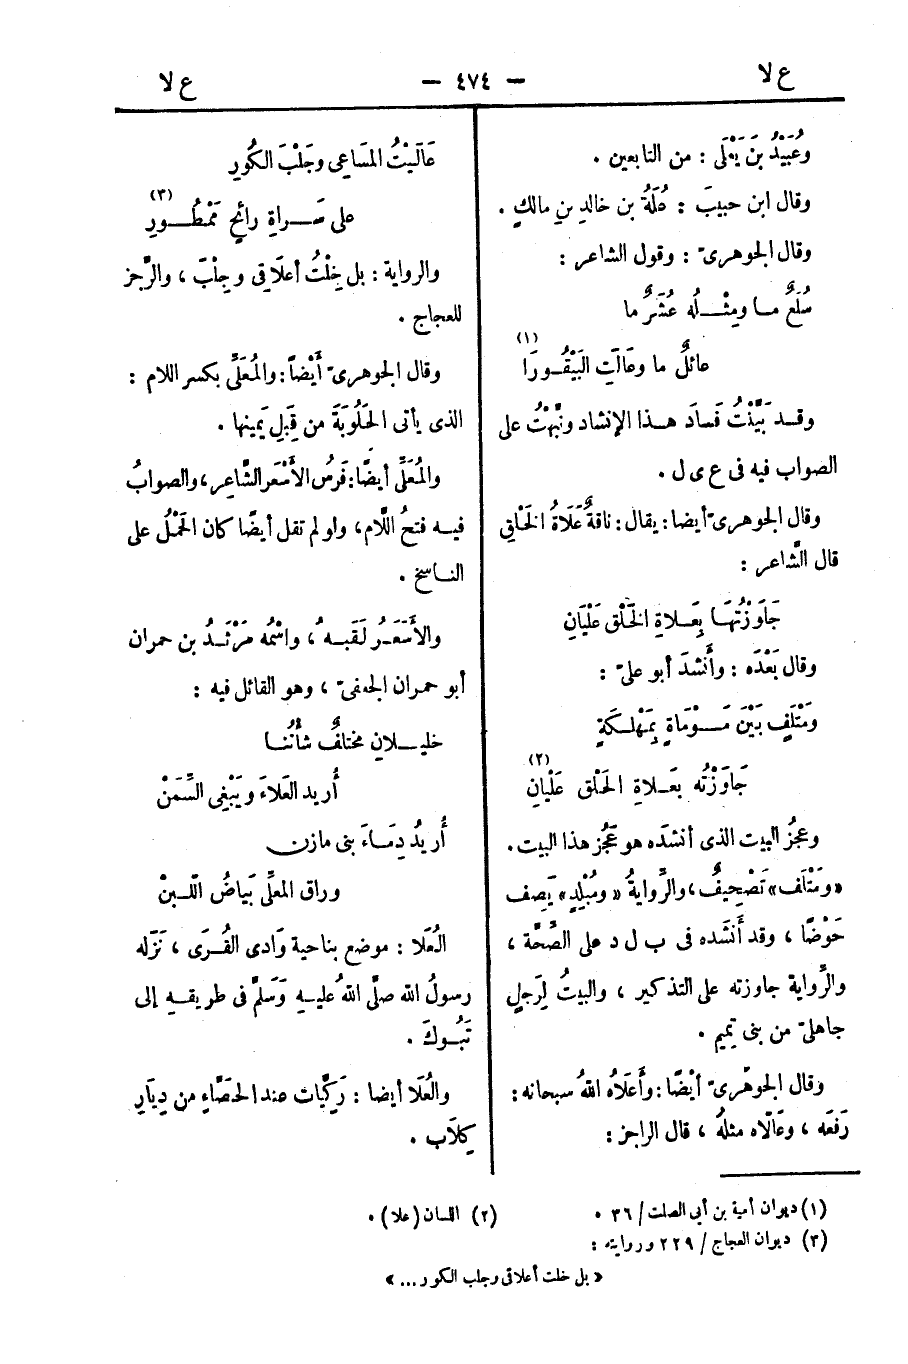 ع لا
— ٤٧٤ —
ع لا
وعُبَيْدُ بنَ يَعْلَى : من التابعين .
وقال ابن حبيبَ : عُلَةُ بن خالدِ بنِ مالكٍ .
وقال الجوهرىّ : وقول الشاعر :
سُلَعٌ مــا ومِثْــلُه عُشَرٌ ما
عائلٌ ما وعالَتِ البَيْقُــورَا (١)
وقــد بَيَّنْتُ فَسادَ هــذا الإنشاد ونَبَّهْتُ على
الصواب فيه فى ع ى ل .
وقال الجوهرىّ أيضا: يقال: ناقةٌ عَلَاةُ الخَلْقِ
قال الشَّاعر :
جَاوَزْتُهَــا بِعَــلاةِ الخَلْقِ عَلْيَانِ
وقال بَعْدَه : وأَنْشدَ أبو علىّ :
ومَتْلَفٍ بَيْنَ مَــوْمَاةٍ بِمَهْلــكَةٍ
جَاوَزْتُه بعَــلاةِ الخَلْقِ عَلْيانِ (٢)
وعجزُ البيت الذى أنشدَه هو عَجُز هذا البيت.
«ومَتْلَف» تَصْحِيفٌ، والرِّوايةُ «ومُبْلِدٍ» يَصِف
حَوْضًا ، وقد أَنْشَده فى ب ل د على الصِّحَّة ،
والرِّواية جاوزته على التذكير ، والبيتُ لِرَجلٍ
جاهلىّ من بنى تميم .
وقال الجوهَرىّ أيْضًا: وأَعلَاهُ اللهُ سبحانه:
رَفَعَه ، وعَالَاه مثلهُ ، قال الراجز :
عَالَيْتُ المسَاعِى وجَلْبَ الكُورِ
على سَــراةِ رائحٍ مَمْطُــورِ (٣)
والرواية : بل خِلْتُ أعلَاقِى وجِلْبَ ، والرَّجز
للعجاج .
وقال الجوهرىّ أَيْضاً: والمُعَلِّى بكسر اللام :
الذى يأتى الحَلُوبَةَ من قِبَلِ يَمينِها .
والمُعَلِّى أيضًا: فَرَسُ الأَسْعَر الشَّاعِر، والصوابُ
فيــه فتحُ اللَّام، ولو لم تقل أيضًا كان الحَمْلُ على
النــاسخ .
والأَسْعَــرُ لَقَبــهُ ، واسْمُه مَرْثَــدُ بن حمران
أبو حمران الجعفىّ ، وهو القائل فيه :
خليــلانِ مختلفٌ شأنُنــا
أُريد العَلاءَ ويَبْغِى السِّمَنْ
أُريدُ دِمَــاءَ بنى مازنٍ
وراق المعلِّى بَيَاضُ اللَّــبنْ
العُلَا : موضع بناحية وَادى القُــرَى ، نَزَله
رسولُ الله صلَّى اللهُ عليــهِ وَسَلمَّ فى طريقــهِ إلى
تَبُــوكَ .
والعُلَا أيضا : رَكيَّات عند الحَصَّاءِ من دِيَارِ
كِلَاب .
(١) ديوان أمية بن أبى الصلت/ ٣٦ .
(٢) اللسان (علا) .
(٣) ديوان العجاج / ٢٢٩ وروايته :
« بل خلت أعلاقى وجلب الكور... »